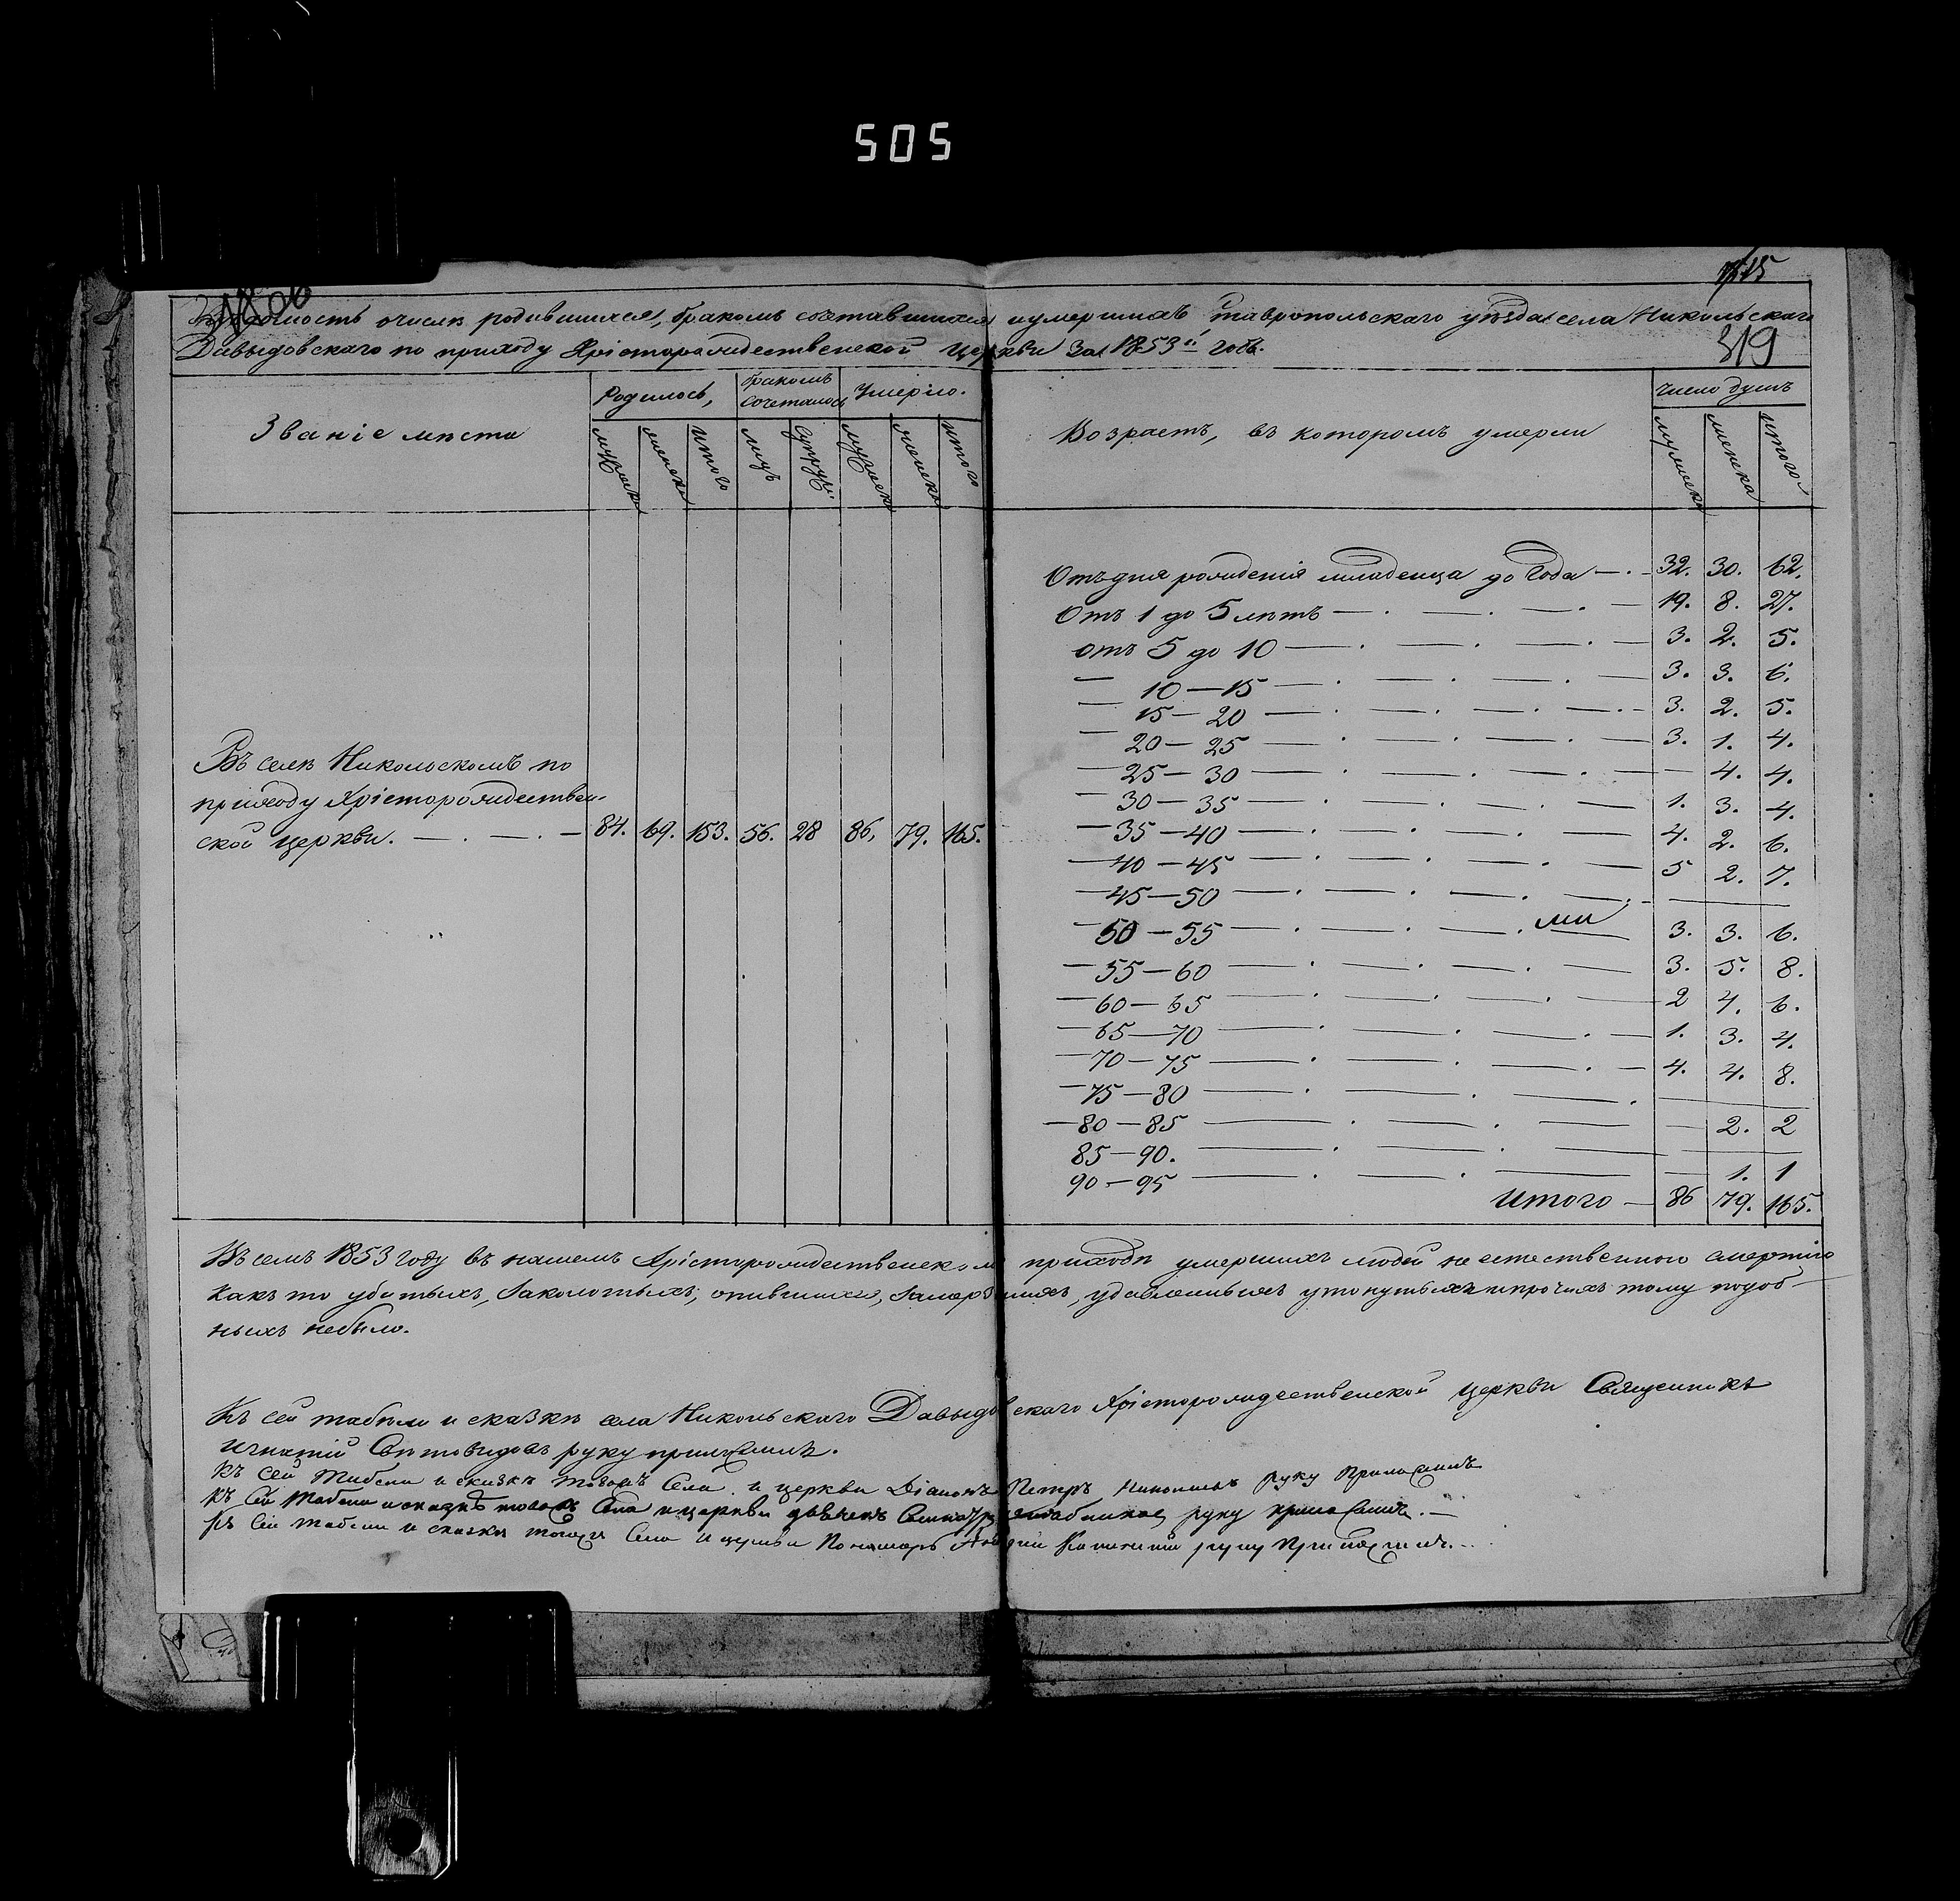 505
1515
Вѣдомость о числѣ родившихся, бракомъ сочетавшихся и умершихъ Ставропольскаго уѣзда села Никольскаго
319
Давыдовскаго по приходу Хрісторождественской церкви за 1853й годъ.
Званіе мѣста
Родилось,
бракомъ сочеталось
Умерло.
Возрастъ, въ которомъ умерли
Число душъ
мужеска
женска
итого
лицъ
супруж.
мужеска
женска
итого
мужеска
женска
итого
Отъ дня рожденія младенца до года — 32. 30. 62.
Отъ 1 до 5 лѣтъ — 19. 8. 27.
отъ 5 до 10 — 3. 2. 5.
— 10 — 15 — 3. 3. 6.
— 15 — 20 — 3. 2. 5.
— 20 — 25 — 3. 1. 4.
— 25 — 30 — — 4. 4.
— 30 — 35 — 1. 3. 4.
— 35 — 40 — 4. 2. 6.
— 40 — 45 — 5 2. 7.
— 45 — 50 —
— 50 — 55 — 3. 3. 6.
— 55 — 60 — 3. 5. 8.
— 60 — 65 — 2 4. 6.
— 65 — 70 — 1. 3. 4.
— 70 — 75 — 4. 4. 8.
— 75 — 80 —
— 80 — 85 — — 2. 2
85 — 90. —
90 — 95 — — 1. 1
Итого — 86 79. 165.
Въ селѣ Никольскомъ по
приходу Хрісторождествен-
ской церкви. — 84. 69. 153. 56. 28 86, 79. 165.
Въ семъ 1853 году въ нашемъ Хрісторождественскомъ приходѣ умершихъ людей не естественною смертію
какъ то убитыхъ, заколотыхъ, опившихся, замерзшихъ, удавленныхъ утонутыхъ и прочихъ тому подоб-
ныхъ небыло.
Къ сей табели и сказкѣ села Никольскаго Давыдовскаго Хрісторождественской церкви Священникъ
Игнатій Свѣтовидовъ руку приложилъ.
Къ сей табели и сказкѣ тогожъ села и церкви Діаконъ Петръ руку приложилъ
Къ сей табели и сказкѣ тогожъ села и церкви дьячекъ руку приложилъ. —
Къ сей табели и сказки тогожъ села и церкви Пономарь руку приложилъ.